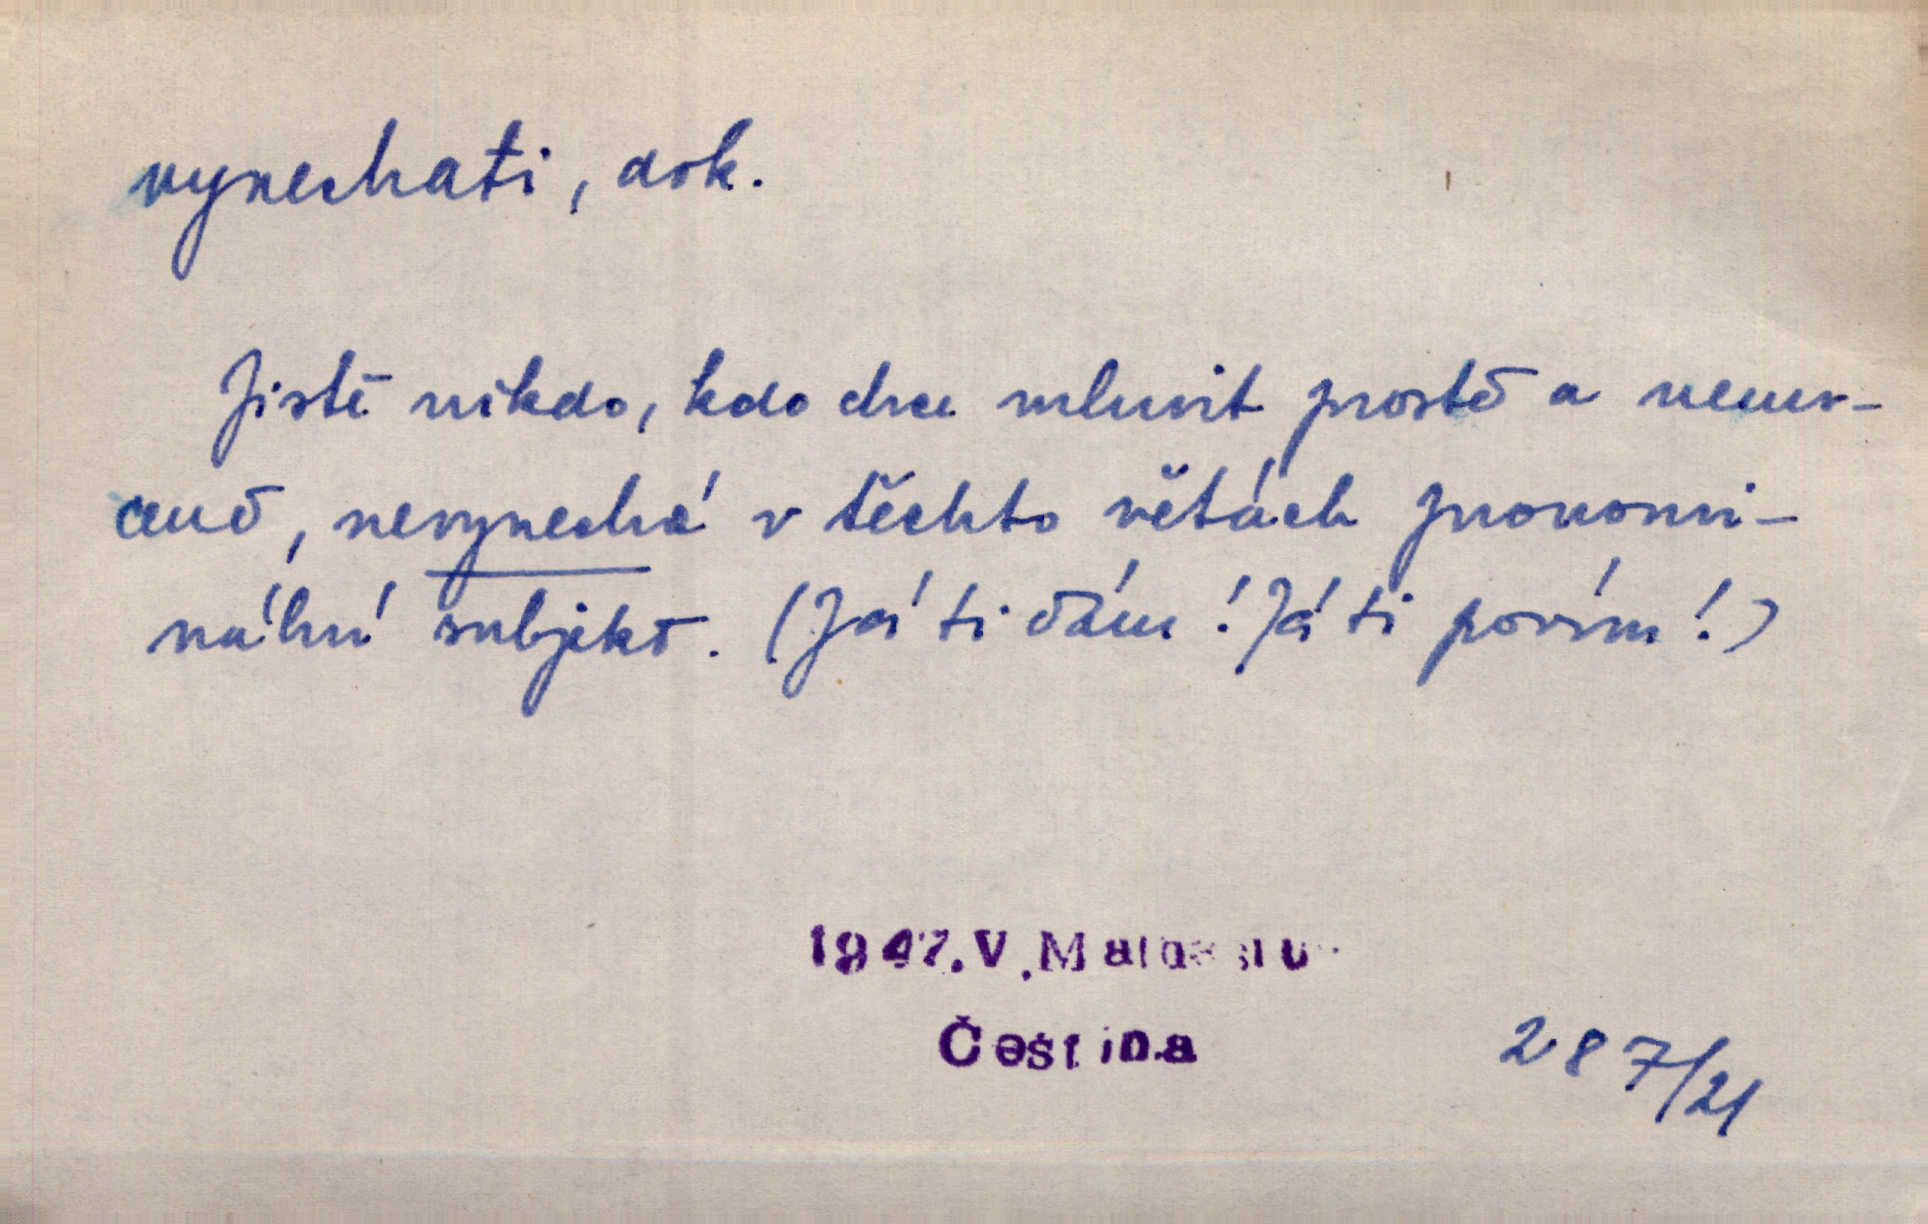 vynechati, dok.
Jistě nikdo, kdo chce mluvit prostě a nenu-
ceně, nevynechá v těchto větách pronomi-
nální subjekt. (Já ti dám! Já ti povím!)
1947.V.Mathesius
Čeština
287/21